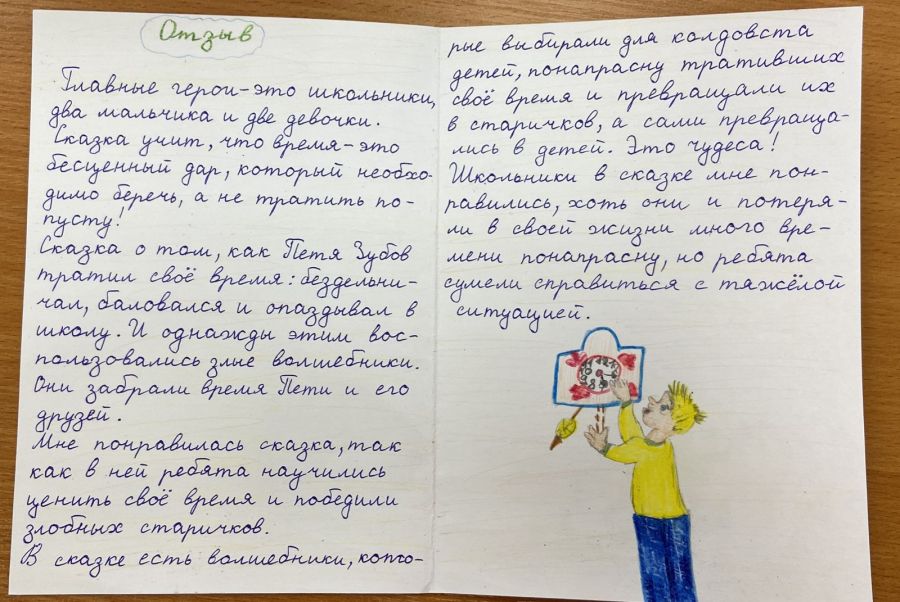 Отзыв
Главные герои-это школьники,
два мальчика и две девочки.
Сказка учит, что время-это
бесценный дар, который необхо-
димо беречь, а не тратить по-
пусту!
Сказка о том, как Петя Зубов
тратил своё время: бездельни-
чал, баловался и опаздывал в
школу. И однажды этим вос-
пользовались злые волшебники.
Они забрали время Пети и его
друзей.
Мне понравилась сказка, так
как в ней ребята научились
ценить своё время и победили
злобных старичков.
В сказке есть волшебники, кото-
рые выбирали для колдовста
детей, понапрасну тративших
своё время и превращали их
в старичков, а сами превраща-
лись в детей. Это чудеса!
Школьники в сказке мне пон-
равились, хоть они и потеря-
ли в своей жизни много вре-
мени понапрасну, но ребята
сумели справиться с тяжёлой
ситуацией.